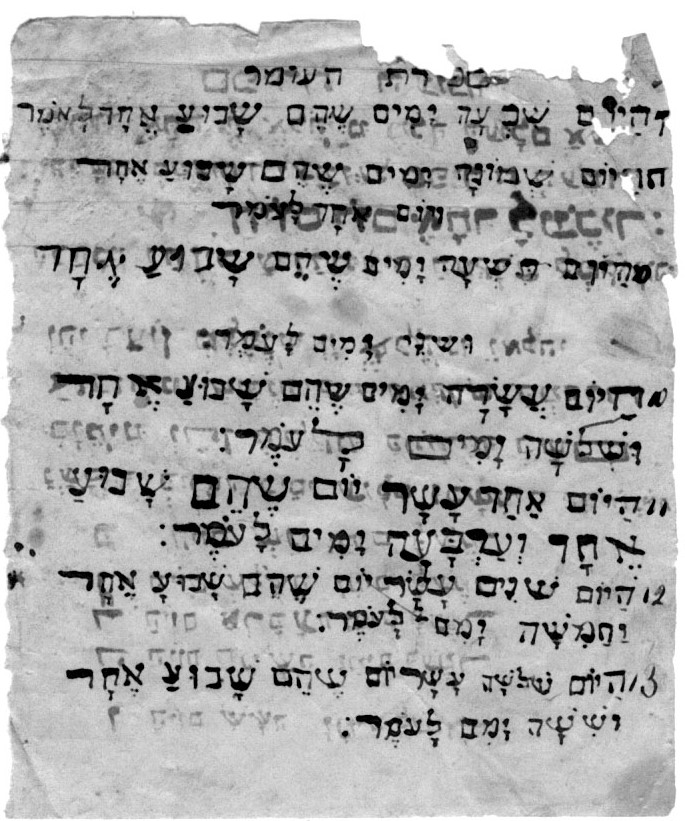 ספירת העומר
7 היום שבעה ימים שהם שבוע אחד לאמר
היום שמונה ימים שהם שבוע אחד
ויום אחד לעמר
היום תשעה ימים שהם שבוע אחד
ושני ימים לעמר:
היום עשרה ימים שהם שבוע אחד
ושלשה ימים לעמר:
11 היום אחד עשר יום שהם שבוע
אחד וארבעה ימים לעמר:
12 היום שנים עשר יום שהם שבוע אחד
וחמשה ימים לעמר:
13 היום שלשה עשר יום שהם שבוע אחד
וששה ימים לעמר: